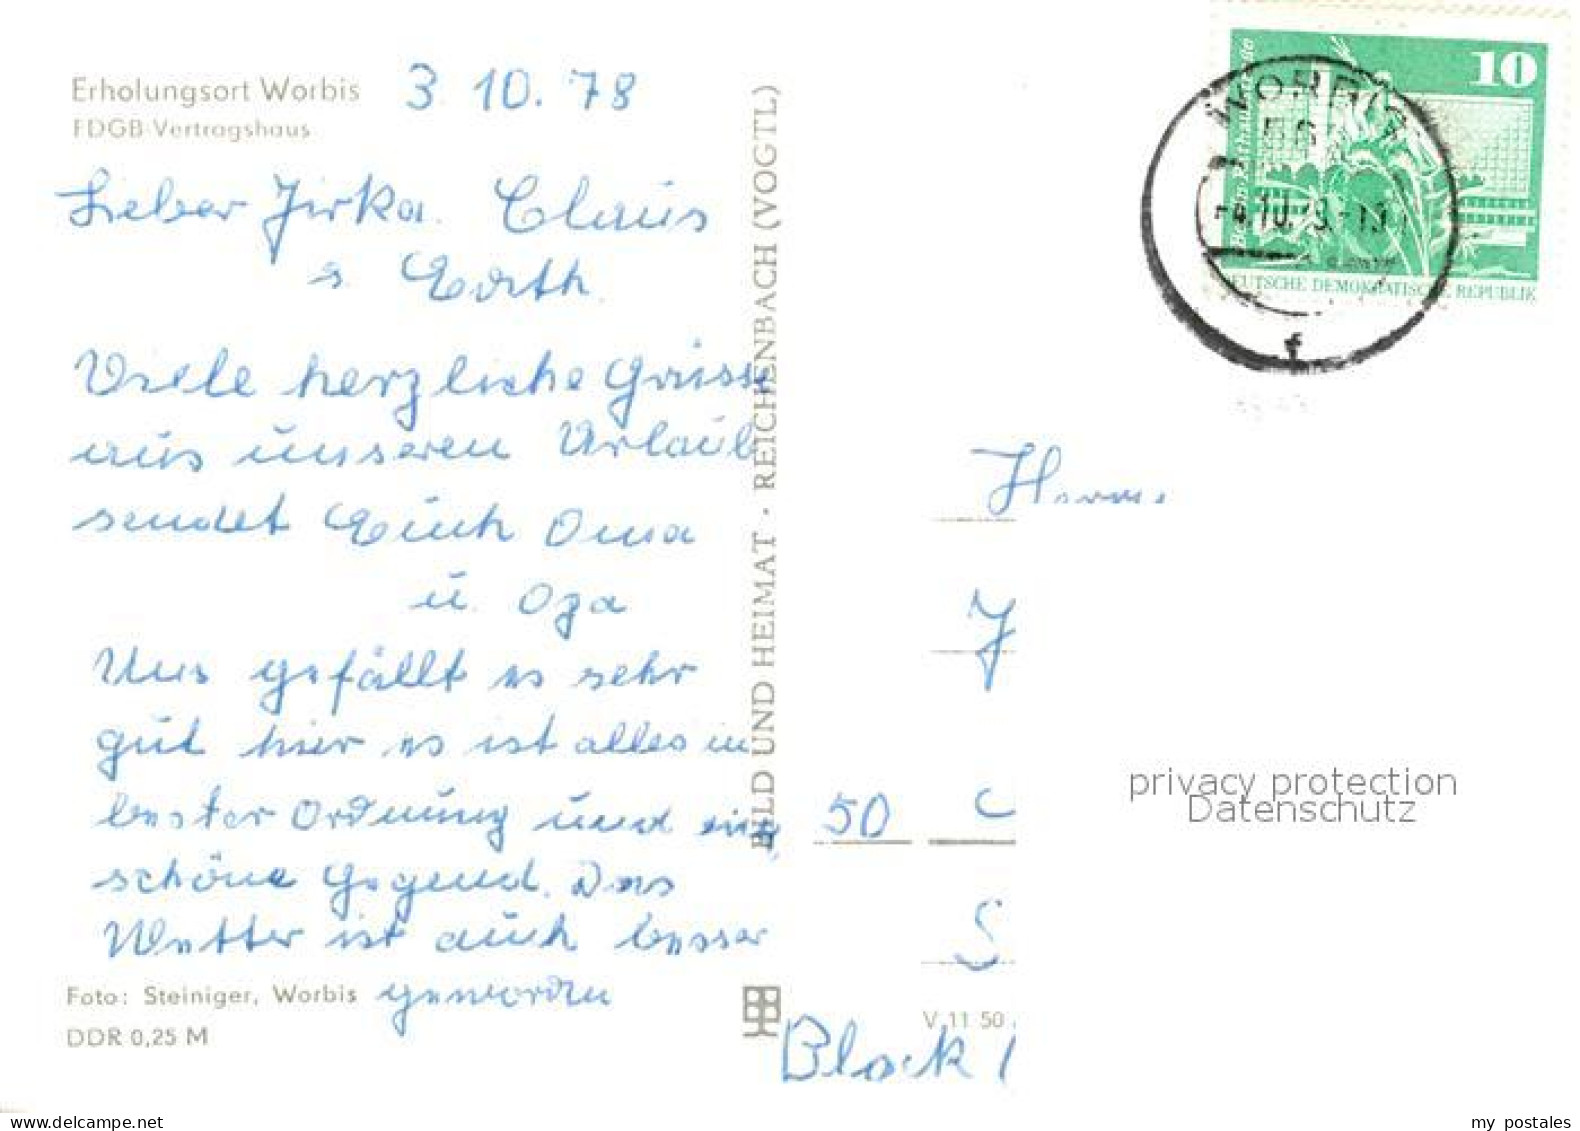 Erholungsort Worbis 3. 10. 78
FDGB-Vertragshaus
Lieber Jirka. Claus
u. Edith.
Viele herzliche Grüsse
aus unseren Urlaub
sendet Euch Oma
u. Opa
Uns gefällt es sehr
gut hier es ist alles in
bester Ordnung und eine
schöne Gegend. Das
Wetter ist auch besser
geworden
Foto: Steiniger, Worbis
DDR 0,25 M
BILD UND HEIMAT · REICHENBACH (VOGTL)
10
DEUTSCHE DEMOKRATISCHE REPUBLIK
WORBIS
Herrn
J
50 C
S
V 11 50
Block 1
privacy protection
Datenschutz
www.delcampe.net
my postales